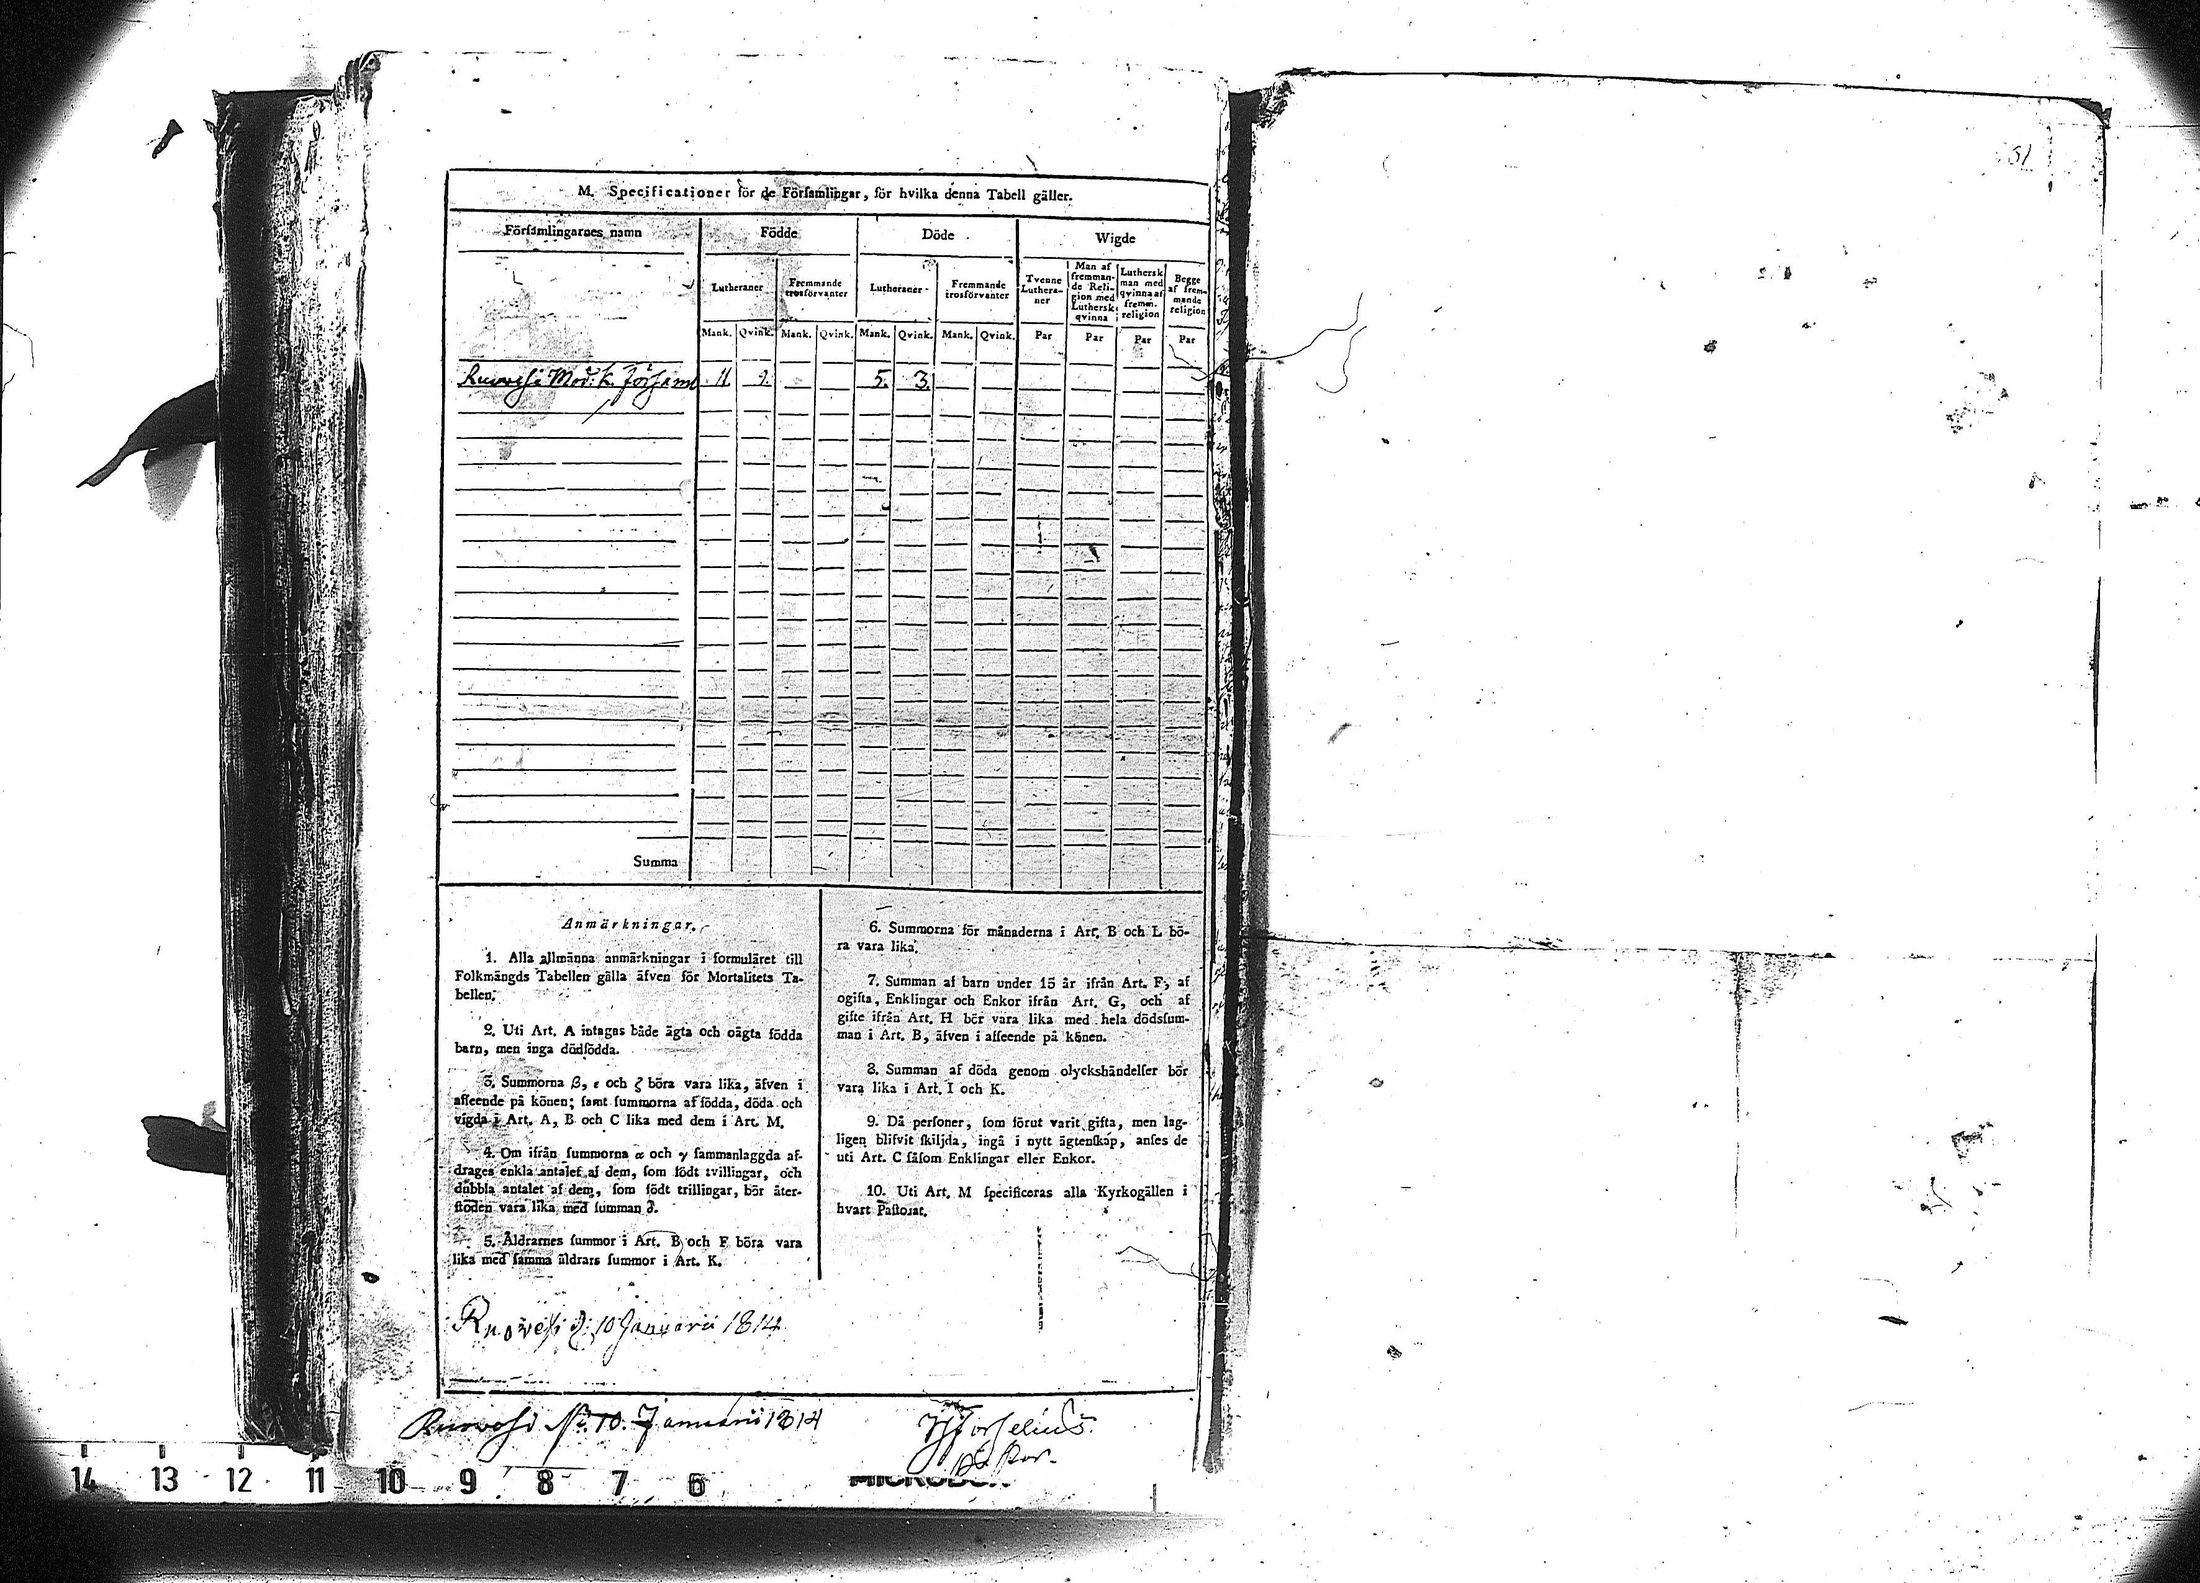 M. Specificationer för de Förſamlingar, för hvilka denna Tabell gäller.
Förſamlingarnes namn
Födde
Döde
Wigde
Lutheraner
Fremmande
trosförvanter
Lutheraner
Fremmande
trosförvanter
Tvenne
Luthera-
ner
Man af
fremman-
de Reli-
gion med
Luthersk
qvinna
Luthersk
man med
qvinna af
fremm.
religion
Begge
af frem-
mande
religion
Mank. Qvink. Mank. Qvink. Mank. Qvink. Mank. Qvink. Par Par Par Par
Ruovesi Mod. K. Församl 11. 9. 5. 3.
Summa
Anmärkningar.
1. Alla allmänna anmärkningar i formuläret till
Folkmängds Tabellen gälla äfven för Mortalitets Ta-
bellen.
2. Uti Art. A intagas både ägta och oägta födda
barn, men inga dödſödda.
3. Summorna β, ε och ζ böra vara lika, äfven i
affeende på könen; ſamt ſummorna af födda, döda och
vigda i Art. A, B och C lika med dem i Art. M.
4. Om ifrån ſummorna α och γ ſammanlaggda af-
drages enkla antalet af dem, ſom födt tvillingar, och
dubbla antalet af dem, ſom födt trillingar, bör åter-
ſtoden vara lika med ſumman δ.
5. Åldrarnes ſummor i Art. B och F böra vara
lika med ſamma åldrars ſummor i Art. K.
6. Summorna för månaderna i Art. B och L bö-
ra vara lika.
7. Summan af barn under 15 år ifrån Art. F, af
ogifta, Enklingar och Enkor ifrån Art. G, och af
gifte ifrån Art. H bör vara lika med hela dödsſum-
man i Art. B, äfven i affeende på könen.
8. Summan af döda genom olyckshändelſer bör
vara lika i Art. I och K.
9. Då perſoner, ſom förut varit gifta, men lag-
ligen blifvit ſkiljda, ingå i nytt ägtenſkap, anſes de
uti Art. C ſåſom Enklingar eller Enkor.
10. Uti Art. M ſpecificeras alla Kyrkogällen i
hvart Paſtorat.
Ruovesi d. 10 Januarii 1814
Ruovesi 10. Januarii 1814
14 13 12 11 10 9 8 7 6